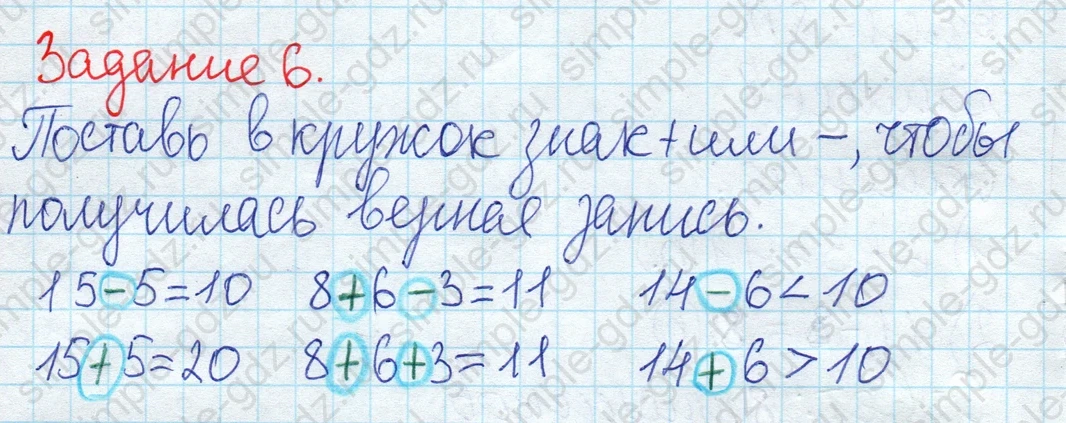 Задание 6.
Поставь в кружок знак + или -, чтобы
получилась верная запись.
15-5=10 8+6-3=11 14-6<10
15+5=20 8+6+3=11 14+6>10
simple-gdz.ru